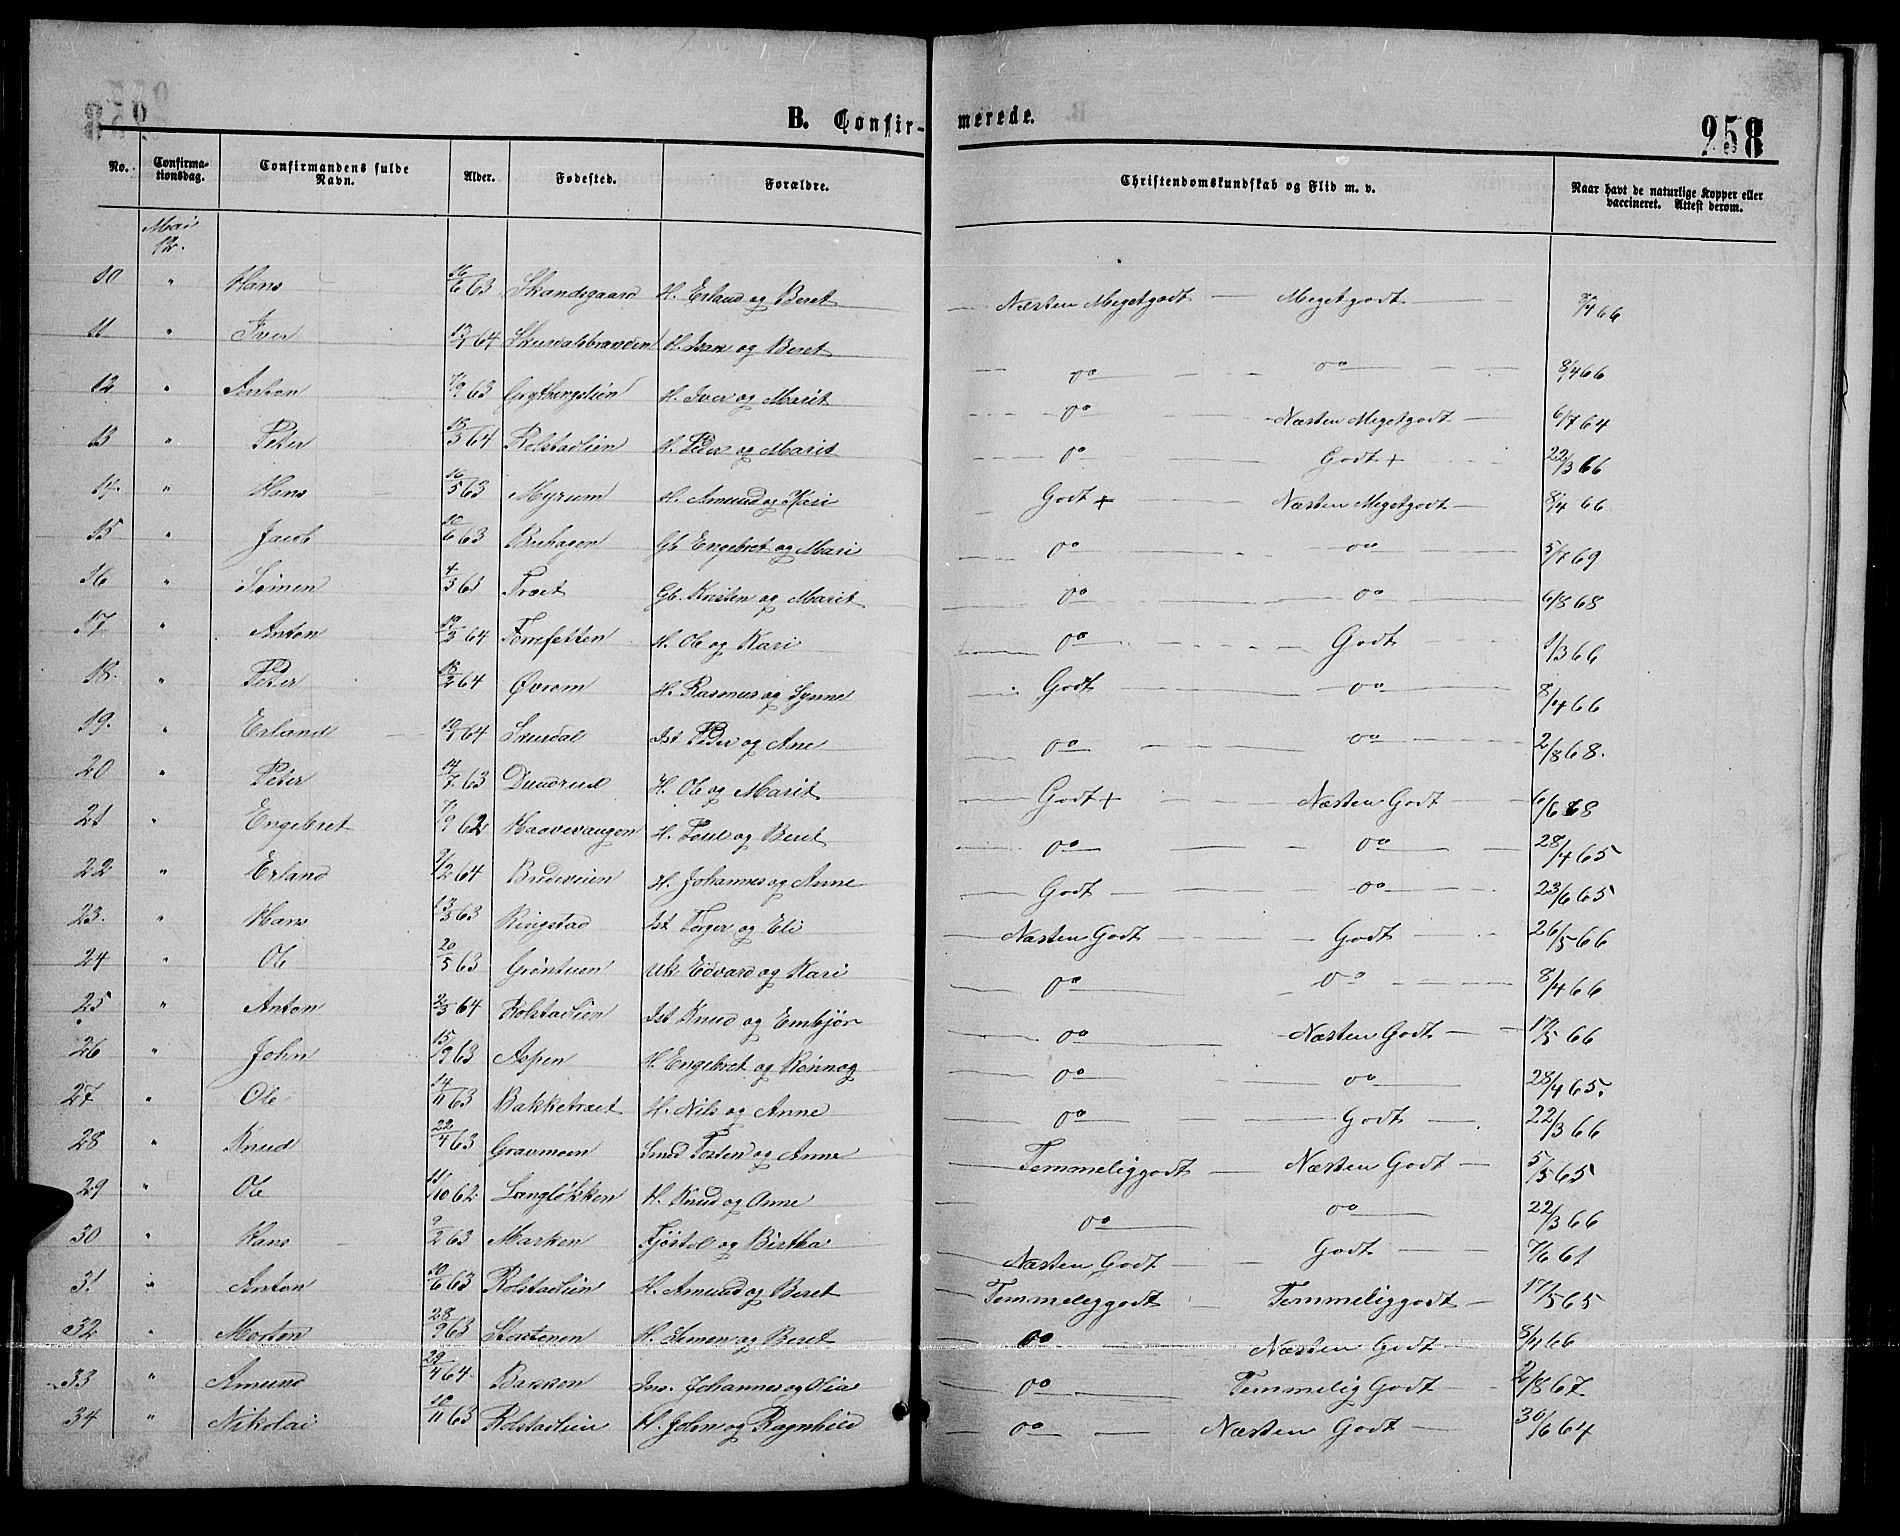 B. Confir-merede.
258
No. Confirma-tionsdag. Confirmandens fulde Navn. Alder. Fødested. Forældre. Christendomskundskab og Flid m. v. Naar havt de naturlige Kopper eller vaccineret. Attest derom.
Mai 12.
10 " Hans 16/6 63 Skandsgaard H. Erland og Beret Næsten Megetgodt — Megetgodt 8/4 66
11 " Iver 13/1 64 Skurdalsbranden H. Ivar og Beret do do 8/4 66
12 " Anton 9 63 H. Iver og Marit do Næsten Megetgodt 6/7 64
13 " Peter 13/3 64 Rolstadlien H. Peder og Marit do Godt + 22/3 66
14. " Hans 16/5 63 Myrum H. Amund og Kari Godt + Næsten Megetgodt 8/4 66
15 " Jacob 10/6 63 Gb Engebret og Mari do do 5/7 69
16 " Simen 4/3 63 Træet Gb. Kristen og Marit do do 6/8 68
17 " Anton 19/2 64 H. Ole og Kari do Godt 1/3 66
18. " Peter 18/2 64 Øvrom H. Rasmus og Synne Godt do 8/4 66
19. " Erland 10/1 64 Skurdal Ist Peder og Ane do do 2/8 68.
20 " Peter 14/7 63 Dundrud H. Ole og Marit Godt + Næsten Godt 6/6 68
21 " Engebret 9 62 Haavevangen H. Poul og Beret do do 28/4 65
22 " Erland 9/2 64 Brudeveien H. Johannes og Anne Godt do 23/6 65
23. " Hans 13/3 63 Ringstad Ist Torger og Eli Næsten Godt Godt 26/5 66
24 " Ole 20/5 63 Grøntuen Uk Edvard og Kari do do 8/4 66
25 " Anton 2/3 64 Rolstadlien Ist Knud og Embjør do Næsten Godt 17/5 66
26 " John 15/9 63 Aspen H. Engebret og Rønnog do do 28/4 65.
27 " Ole 14/11 63 Bakketræet H. Nils og Anne do Godt 22/3 66
28 " Knud 22/4 63 Gravmoen Smed Torsten og Anne Temmeliggodt Næsten Godt 5/5 65
29 " Ole 11/10 62 Langløkken H. Knud og Anne do do 22/3 66
30 " Hans 9/2 63 Marken Kjøstol og Birtha Næsten Godt Godt 7/6 61
31 " Anton 10/6 63 Rolstadlien H. Amund og Beret Temmeliggodt Temmeliggodt 17/5 65
32 " Morten 28/9 63 Storstenen H. Simen og Beret do Næsten Godt 8/4 66
33 " Amund 29/4 64 Bakken Ins. Johannes og Olia do Temmelig Godt 2/8 67
34 " Nikolai 10/11 63 Rolstadlien H. John og Ragnhild do Næsten Godt 30/6 64